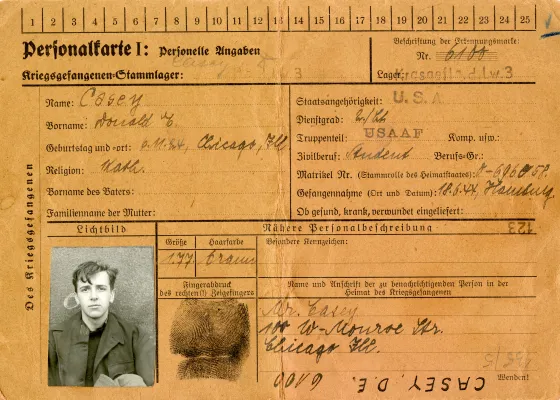 1 2 3 4 5 6 7 8 9 10 11 12 13 14 15 16 17 18 19 20 21 22 23 24 25
Personalkarte I: Personelle Angaben
Kriegsgefangenen-Stammlager:
Beschriftung der Erkennungsmarke:
Nr. 6100
Lager: Kr.Gef.Lag.d.Lw.3
Des Kriegsgefangenen
Name: Casey
Vorname: Donald E.
Geburtstag und -ort: Chicago, Ill.
Religion: Kath.
Vorname des Vaters:
Familienname der Mutter:
Staatsangehörigkeit: U.S.A.
Dienstgrad: 2/Lt.
Truppenteil: USAAF Komp. usw.:
Zivilberuf: Student Berufs-Gr.:
Matrikel Nr. (Stammrolle des Heimatstaates):
Gefangennahme (Ort und Datum): 18.6.44, Hamburg
Ob gesund, krank, verwundet eingeliefert:
Lichtbild
Nähere Personalbeschreibung
123
Größe Haarfarbe Besondere Kennzeichen:
1.77 braun
Fingerabdruck
des rechten (!) Zeigefingers
Name und Anschrift der zu benachrichtigenden Person in der
Heimat des Kriegsgefangenen
Mr. Casey
100 W-Monroe Str.
Chicago Ill.
Wenden!
CASEY, D.E. 6100